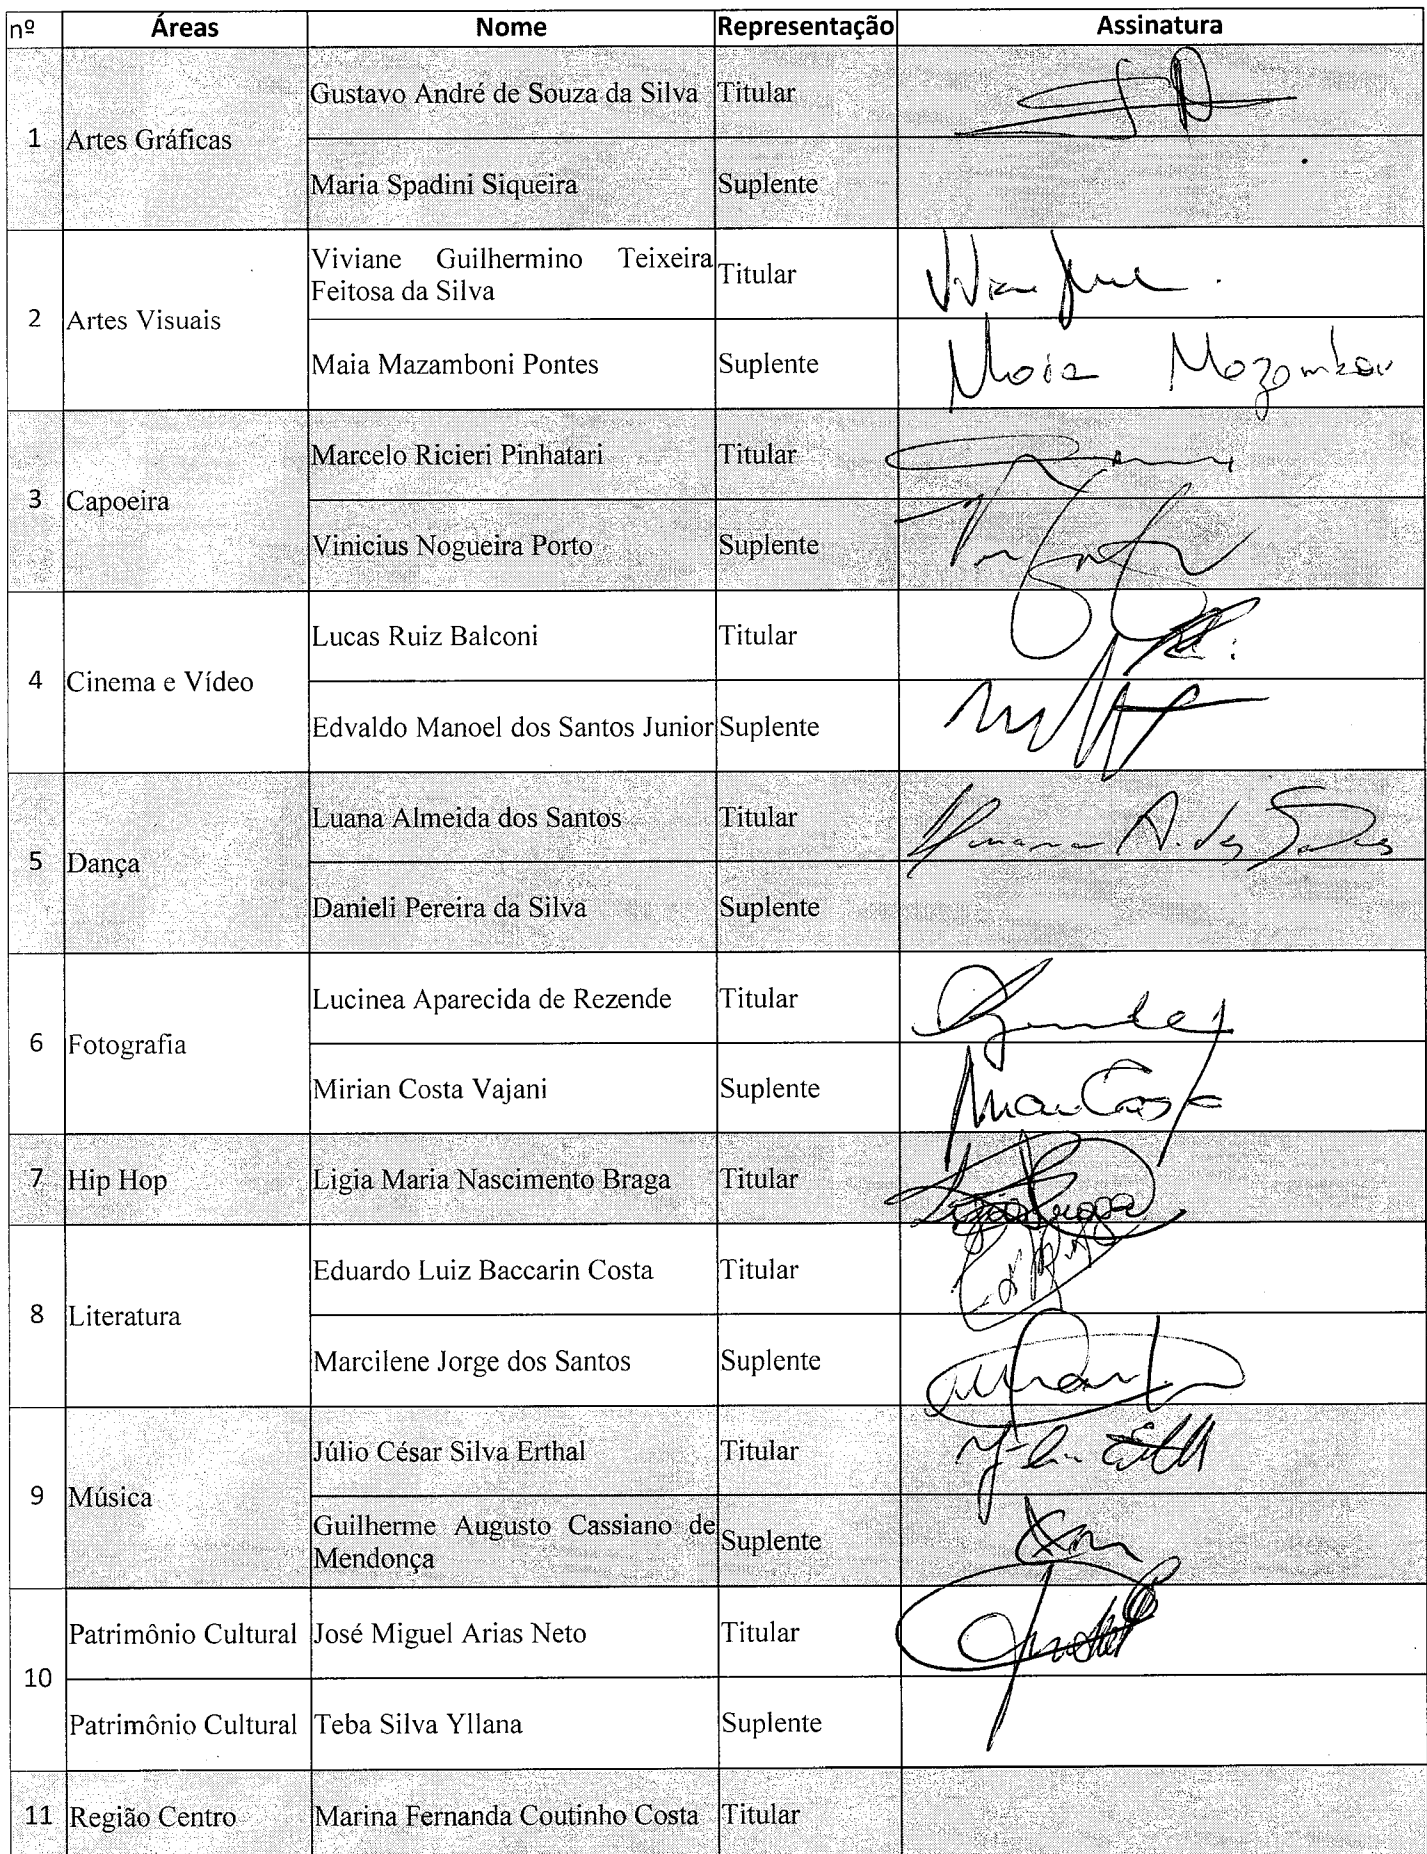 nº Áreas Nome Representação Assinatura
1 Artes Gráficas
Gustavo André de Souza da Silva Titular
Maria Spadini Siqueira Suplente
2 Artes Visuais
Viviane Guilhermino Teixeira
Feitosa da Silva
Titular
Maia Mazamboni Pontes Suplente
3 Capoeira
Marcelo Ricieri Pinhatari Titular
Vinicius Nogueira Porto Suplente
4 Cinema e Vídeo
Lucas Ruiz Balconi Titular
Edvaldo Manoel dos Santos Junior Suplente
5 Dança
Luana Almeida dos Santos Titular
Danieli Pereira da Silva Suplente
6 Fotografia
Lucinea Aparecida de Rezende Titular
Mirian Costa Vajani Suplente
7 Hip Hop Ligia Maria Nascimento Braga Titular
8 Literatura
Eduardo Luiz Baccarin Costa Titular
Marcilene Jorge dos Santos Suplente
9 Música
Júlio César Silva Erthal Titular
Guilherme Augusto Cassiano de
Mendonça
Suplente
10
Patrimônio Cultural José Miguel Arias Neto Titular
Patrimônio Cultural Teba Silva Yllana Suplente
11 Região Centro Marina Fernanda Coutinho Costa Titular